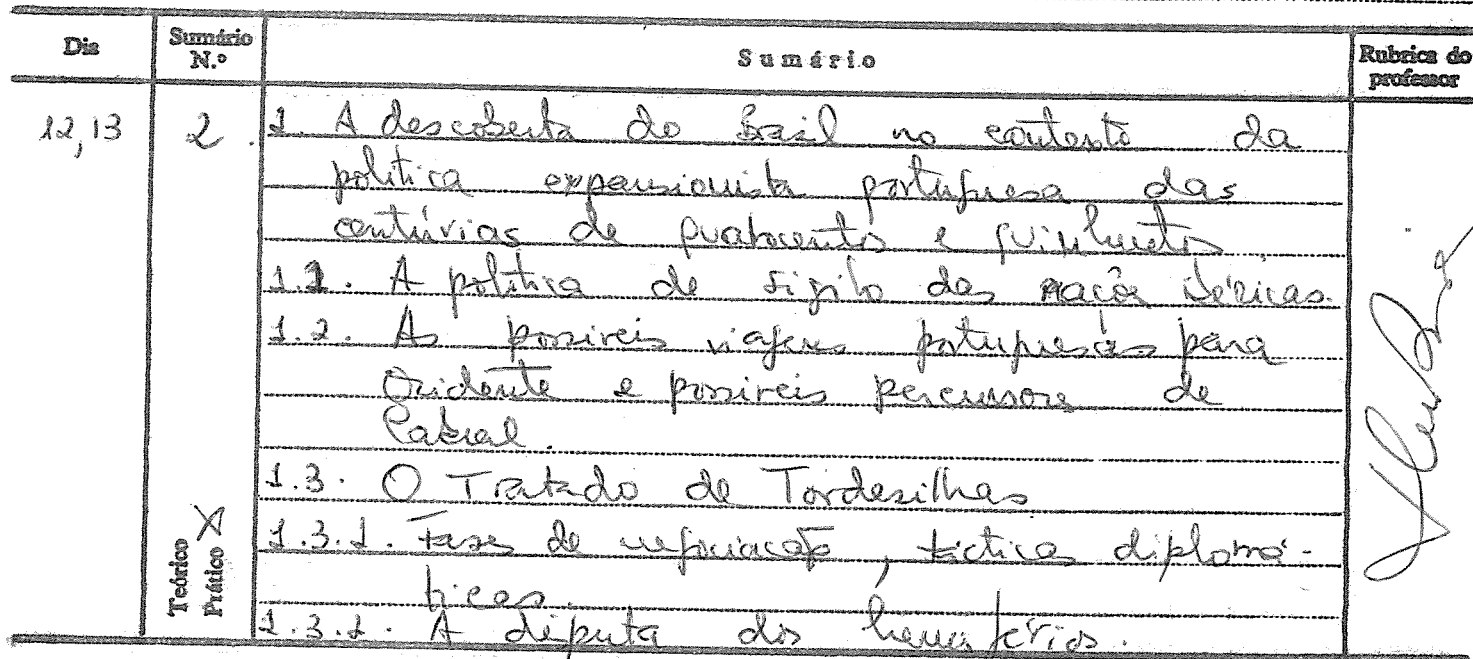 Dia Sumário N.º Sumário Rubrica do professor
12,13 2. 1. A descoberta do Brasil no contexto da
política expansionista portuguesa das
centúrias de quatrocentos e quinhentos
1.1. A política de sigilo das nações ibéricas.
1.2. As possíveis viagens portuguesas para
Ocidente e possíveis percursores de
Cabral.
1.3. O Tratado de Tordesilhas
1.3.1. Fases de negociação, tácticas diplomá-
ticas.
1.3.1. A disputa dos hemisférios.
Teórico X
Prático